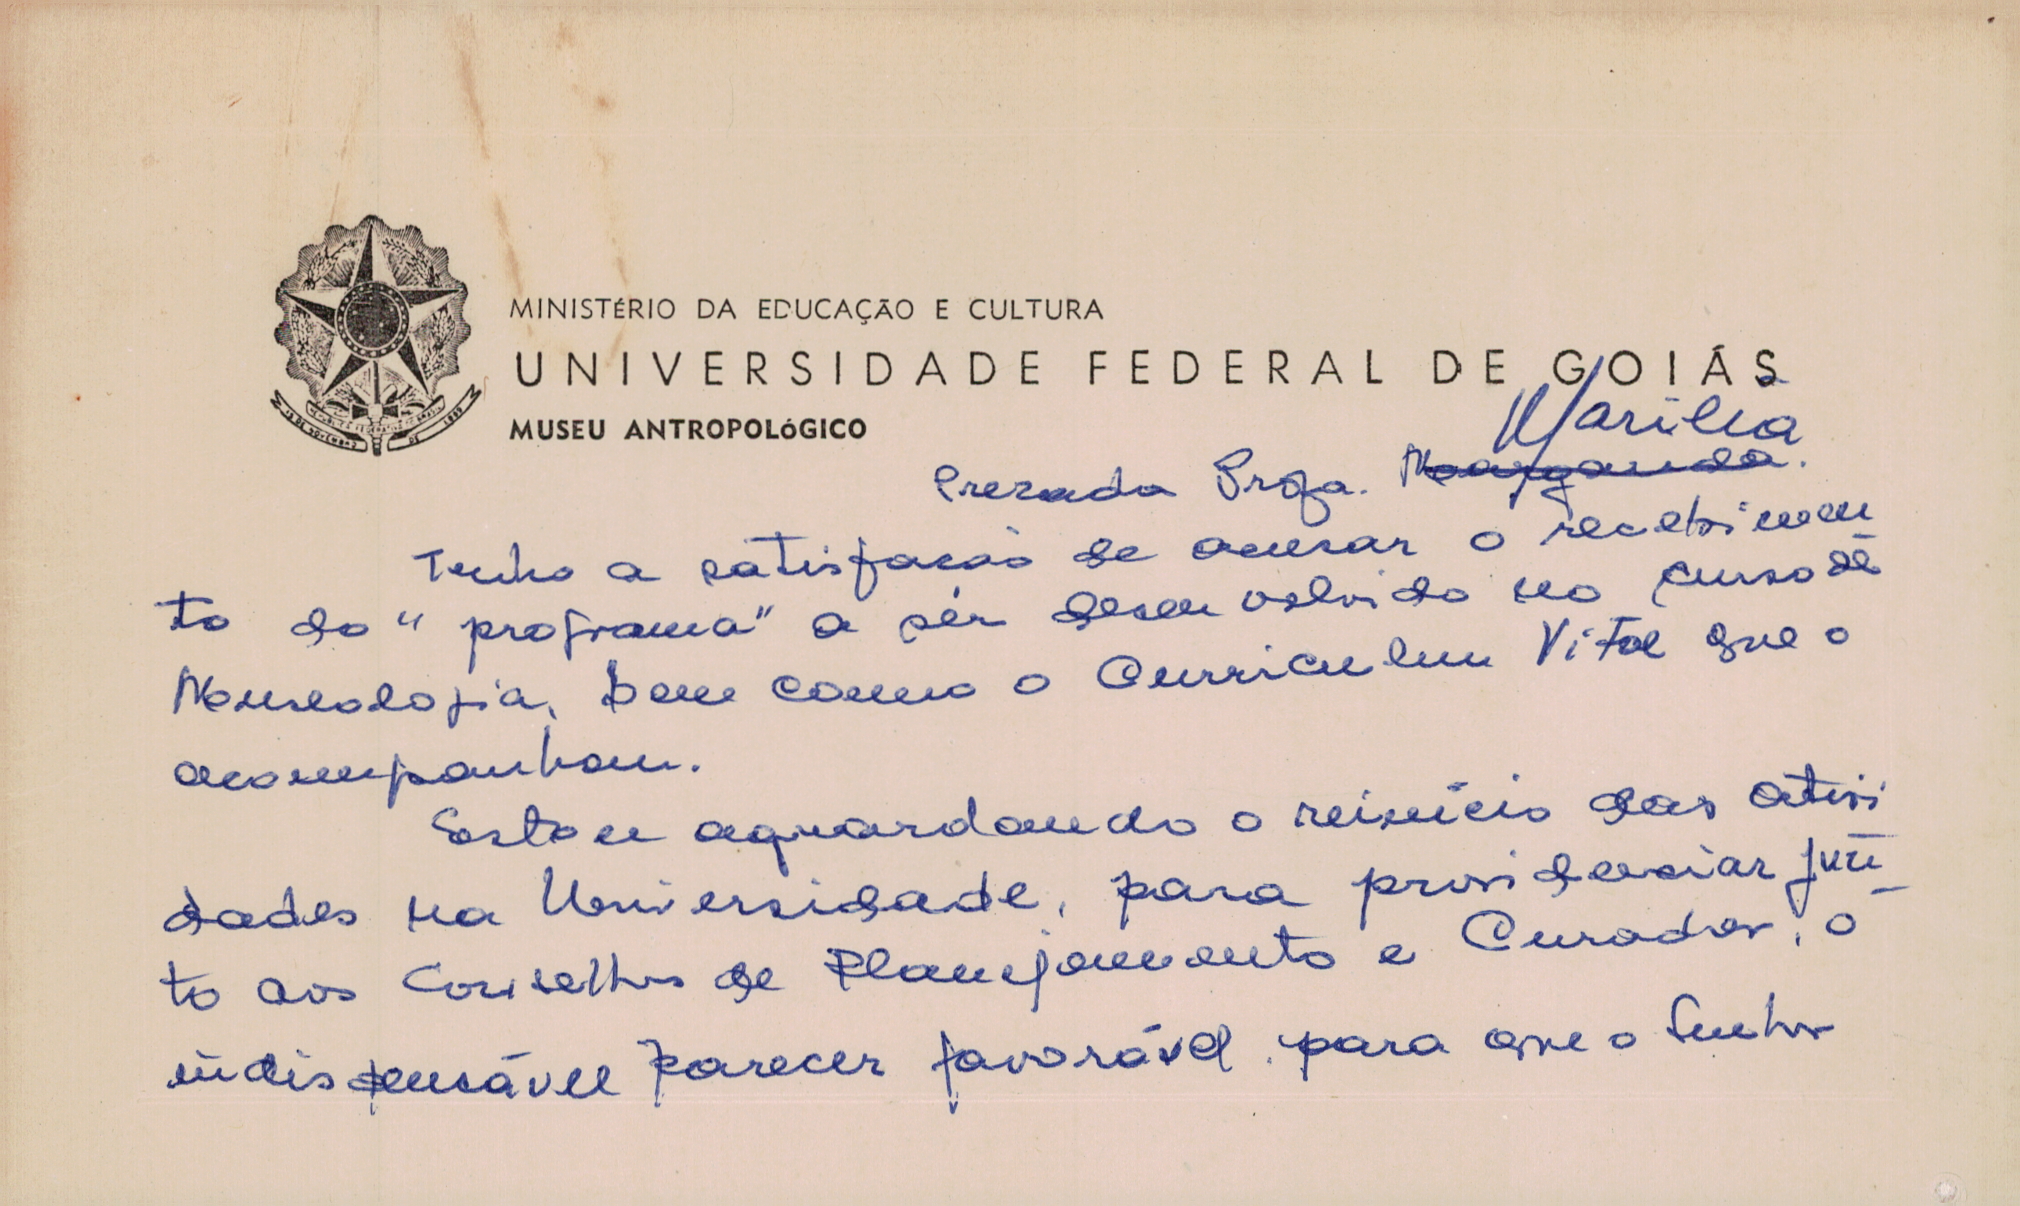 MINISTÉRIO DA EDUCAÇÃO E CULTURA
UNIVERSIDADE FEDERAL DE GOIÁS
MUSEU ANTROPOLÓGICO
Marilia
Prezada Profa.
Tenho a satisfação de acusar o recebimen
to do "programa" a sér desenvolvido no curso de
Museologia, bem como o Curriculum Vitae que o
acompanham.
Estou aguardando o reinício das ativi
dades na Universidade, para providenciar jun
to aos Conselhos de Planejamento e Curador, o
indispensável parecer favorável, para que o Senhor